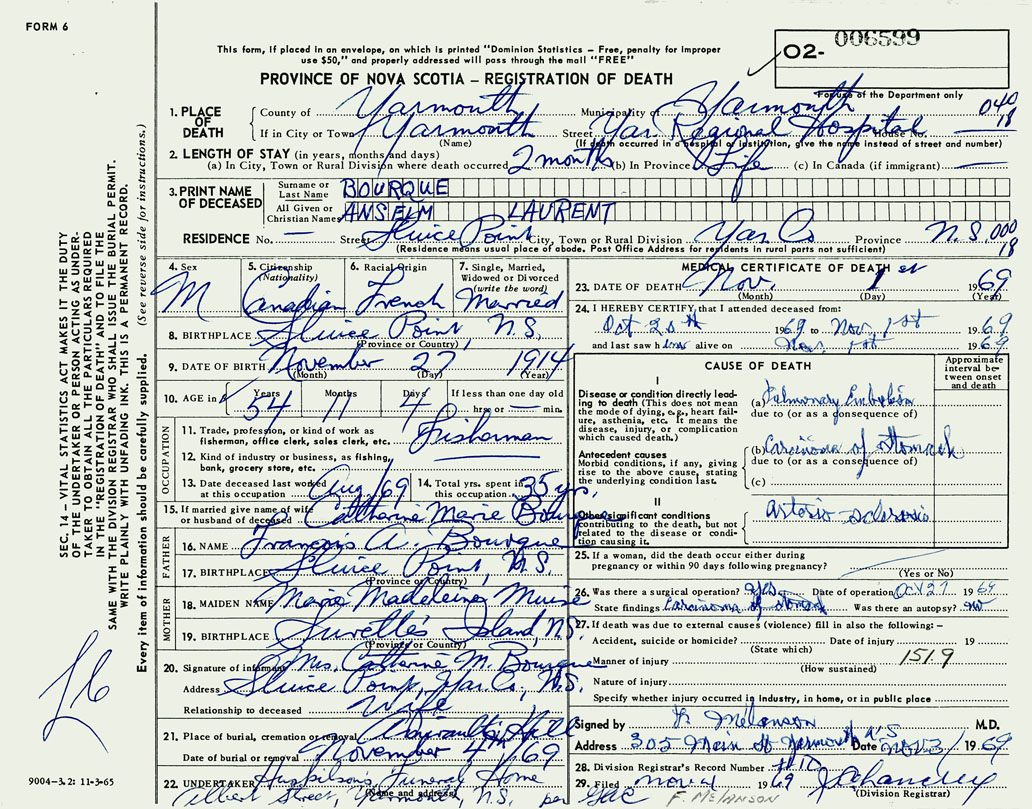 FORM 6
This form, if placed in an envelope, on which is printed "Dominion Statistics – Free, penalty for improper
use $50," and properly addressed will pass through the mail "FREE"
PROVINCE OF NOVA SCOTIA – REGISTRATION OF DEATH
O2- 006599
For use of the Department only
1. PLACE OF DEATH
County of Yarmouth Municipality of Yarmouth 040
If in City or Town Yarmouth Street Yar Regional Hospital House No. 18
(Name) (If death occurred in a hospital or institution, give the name instead of street and number)
2. LENGTH OF STAY (in years, months and days)
(a) In City, Town or Rural Division where death occurred 2 months (b) In Province Life (c) In Canada (if immigrant) —
3. PRINT NAME OF DECEASED
Surname or Last Name BOURQUE
All Given or Christian Names ANSELM LAURENT
RESIDENCE No. — Street Sluice Point City, Town or Rural Division Yar Co Province N.S. 000
(Residence means usual place of abode. Post Office Address for residents in rural parts not sufficient) 18
4. Sex M
5. Citizenship (Nationality) Canadian
6. Racial Origin French
7. Single, Married, Widowed or Divorced (write the word) Married
8. BIRTHPLACE Sluice Point, N.S.
(Province or Country)
9. DATE OF BIRTH November 27 1914
(Month) (Day) (Year)
10. AGE in Years 54 Months 11 Days 4 If less than one day old
hrs. or — min.
OCCUPATION
11. Trade, profession, or kind of work as
fisherman, office clerk, sales clerk, etc. Fisherman
12. Kind of industry or business, as fishing,
bank, grocery store, etc.
13. Date deceased last worked at this occupation Aug/69
14. Total yrs. spent in this occupation 35 yrs.
15. If married give name of wife
or husband of deceased Catherine Marie Bourque
FATHER
16. NAME Francois A. Bourque
17. BIRTHPLACE Sluice Point, N.S.
(Province or Country)
MOTHER
18. MAIDEN NAME Marie Madeleine Muise
19. BIRTHPLACE Surette's Island, N.S.
(Province or Country)
20. Signature of informant Mrs. Catherine M. Bourque
Address Sluice Point, Yar Co, N.S.
Relationship to deceased Wife
21. Place of burial, cremation or removal Amirault's Hill
Date of burial or removal November 4th /69
22. UNDERTAKER Huskilson's Funeral Home
(Name and address)
Albert Street, Yarmouth, N.S. per
MEDICAL CERTIFICATE OF DEATH
23. DATE OF DEATH Nov. 1st 1969
(Month) (Day) (Year)
24. I HEREBY CERTIFY that I attended deceased from:
Oct 20th 1969 to Nov. 1st 1969
and last saw him alive on Nov. 1st 1969
CAUSE OF DEATH
Approximate interval between onset and death
I
Disease or condition directly leading to death (This does not mean the mode of dying, e.g., heart failure, asthenia, etc. It means the disease, injury, or complication which caused death.)
(a) Pulmonary Embolism
due to (or as a consequence of)
Antecedent causes
Morbid conditions, if any, giving rise to the above cause, stating the underlying condition last.
(b) Carcinoma of Stomach
due to (or as a consequence of)
(c)
II
Other significant conditions contributing to the death, but not related to the disease or condition causing it.
Arterio sclerosis
25. If a woman, did the death occur either during
pregnancy or within 90 days following pregnancy?
(Yes or No)
26. Was there a surgical operation? yes Date of operation Oct 27 1969
State findings Carcinoma of stomach Was there an autopsy? no
27. If death was due to external causes (violence) fill in also the following: –
Accident, suicide or homicide? Date of injury 19
(State which)
Manner of injury 151.9
(How sustained)
Nature of injury
Specify whether injury occurred in industry, in home, or in public place
Signed by F. Melanson M.D.
Address 305 Main St Yarmouth N.S Date Nov 3 1969
28. Division Registrar's Record Number
29. Filed Nov 4 1969
(Division Registrar)
F. MELANSON
SEC. 14 – VITAL STATISTICS ACT MAKES IT THE DUTY
OF THE UNDERTAKER OR PERSON ACTING AS UNDERTAKER TO OBTAIN ALL THE PARTICULARS REQUIRED
IN THE "REGISTRATION OF DEATH" AND TO FILE THE
SAME WITH THE DIVISION REGISTRAR WHO SHALL ISSUE THE BURIAL PERMIT.
WRITE PLAINLY WITH UNFADING INK. THIS IS A PERMANENT RECORD.
Every item of information should be carefully supplied. (See reverse side for instructions.)
9004-3.2: 11-3-65